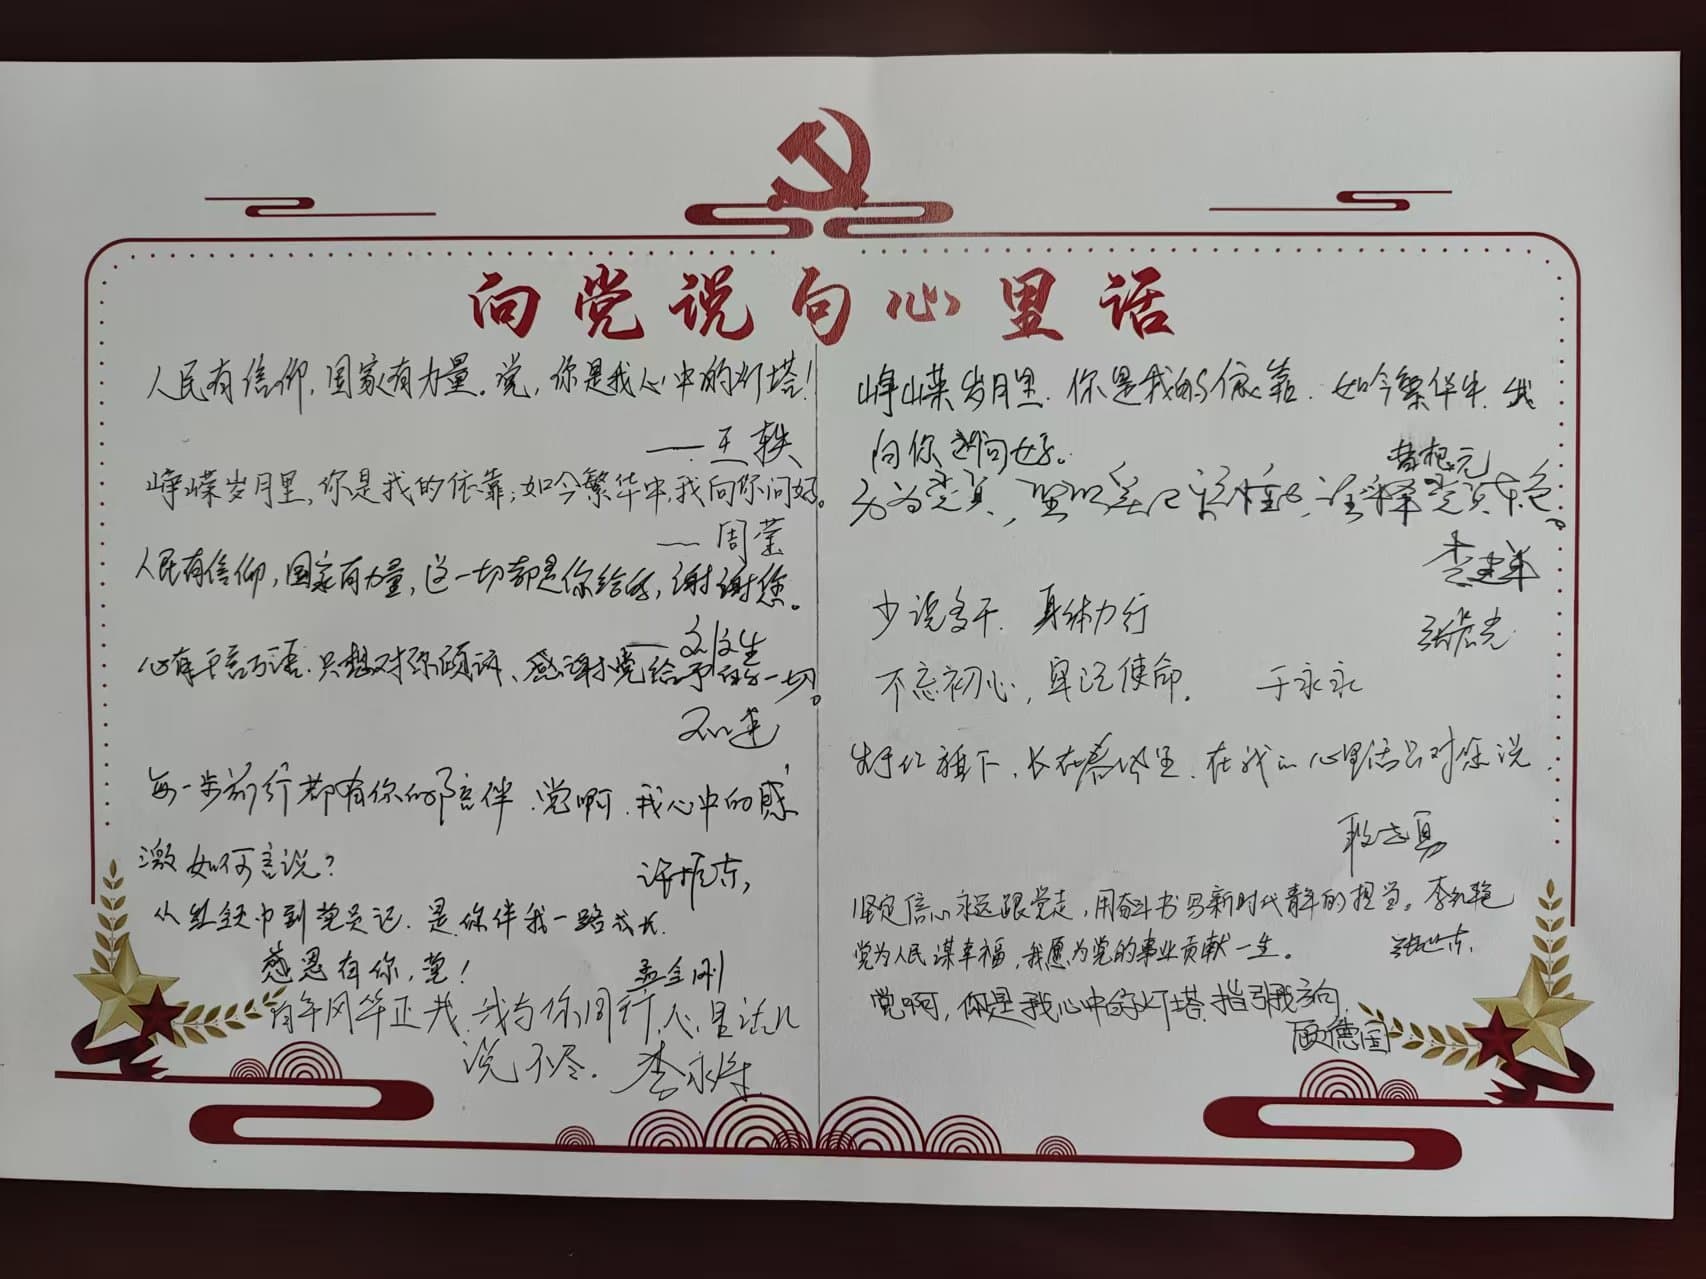 向党说句心里话
人民有信仰,国家有力量。党,你是我心中的灯塔!
——王轶
峥嵘岁月里,你是我的依靠;如今繁华中,我向你问好。
——周莹
人民有信仰,国家有力量,这一切都是你给的,谢谢您。
——刘文生
心有千言万语,只想对你倾诉、感谢党给予的一切。
每一步前行都有你的陪伴,党啊,我心中的感
激如何言说?
许振东,
从红领巾到党员记,是你伴我一路成长.
感恩有你,党!
孟金刚
百年风华正茂,我与你同行,心里话儿
说不尽.
李永
峥嵘岁月里.你是我的依靠.如今繁华中.我
向你问好。
元
为党员,坚
党员本色。
李建军
少说多干.身体力行
张宏光
不忘初心,牢记使命.
于永永
生于红旗下,长在春风里.在我的心里话只对你说
耿志勇
坚定信心永远跟党走,用奋斗书写新时代青年的担当。李艳
党为人民谋幸福,我愿为党的事业贡献一生。
张世东.
党啊,你是我心中的灯塔,指引我方向.
顾德国